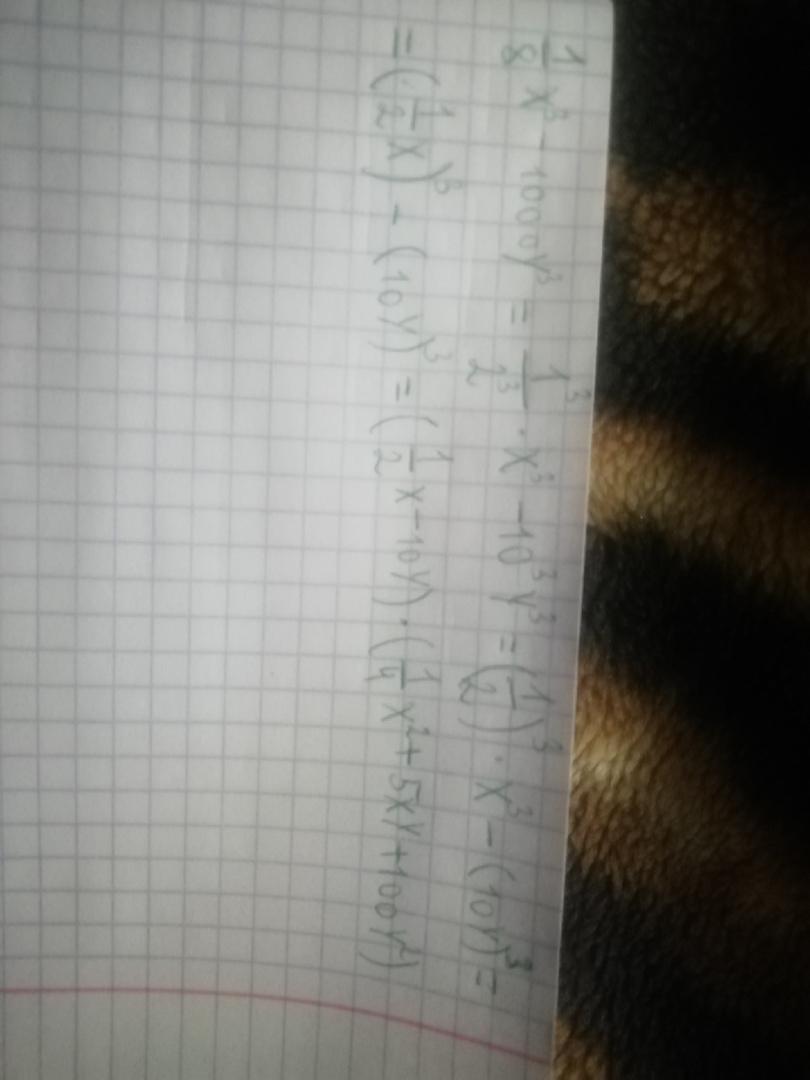 1/8 x³ - 1000y³ = 1³/2³ · x³ - 10³y³ = (1/2)³ · x³ - (10y)³ =
= (1/2 x)³ - (10y)³ = (1/2 x - 10y) · (1/4 x² + 5xy + 100y²)